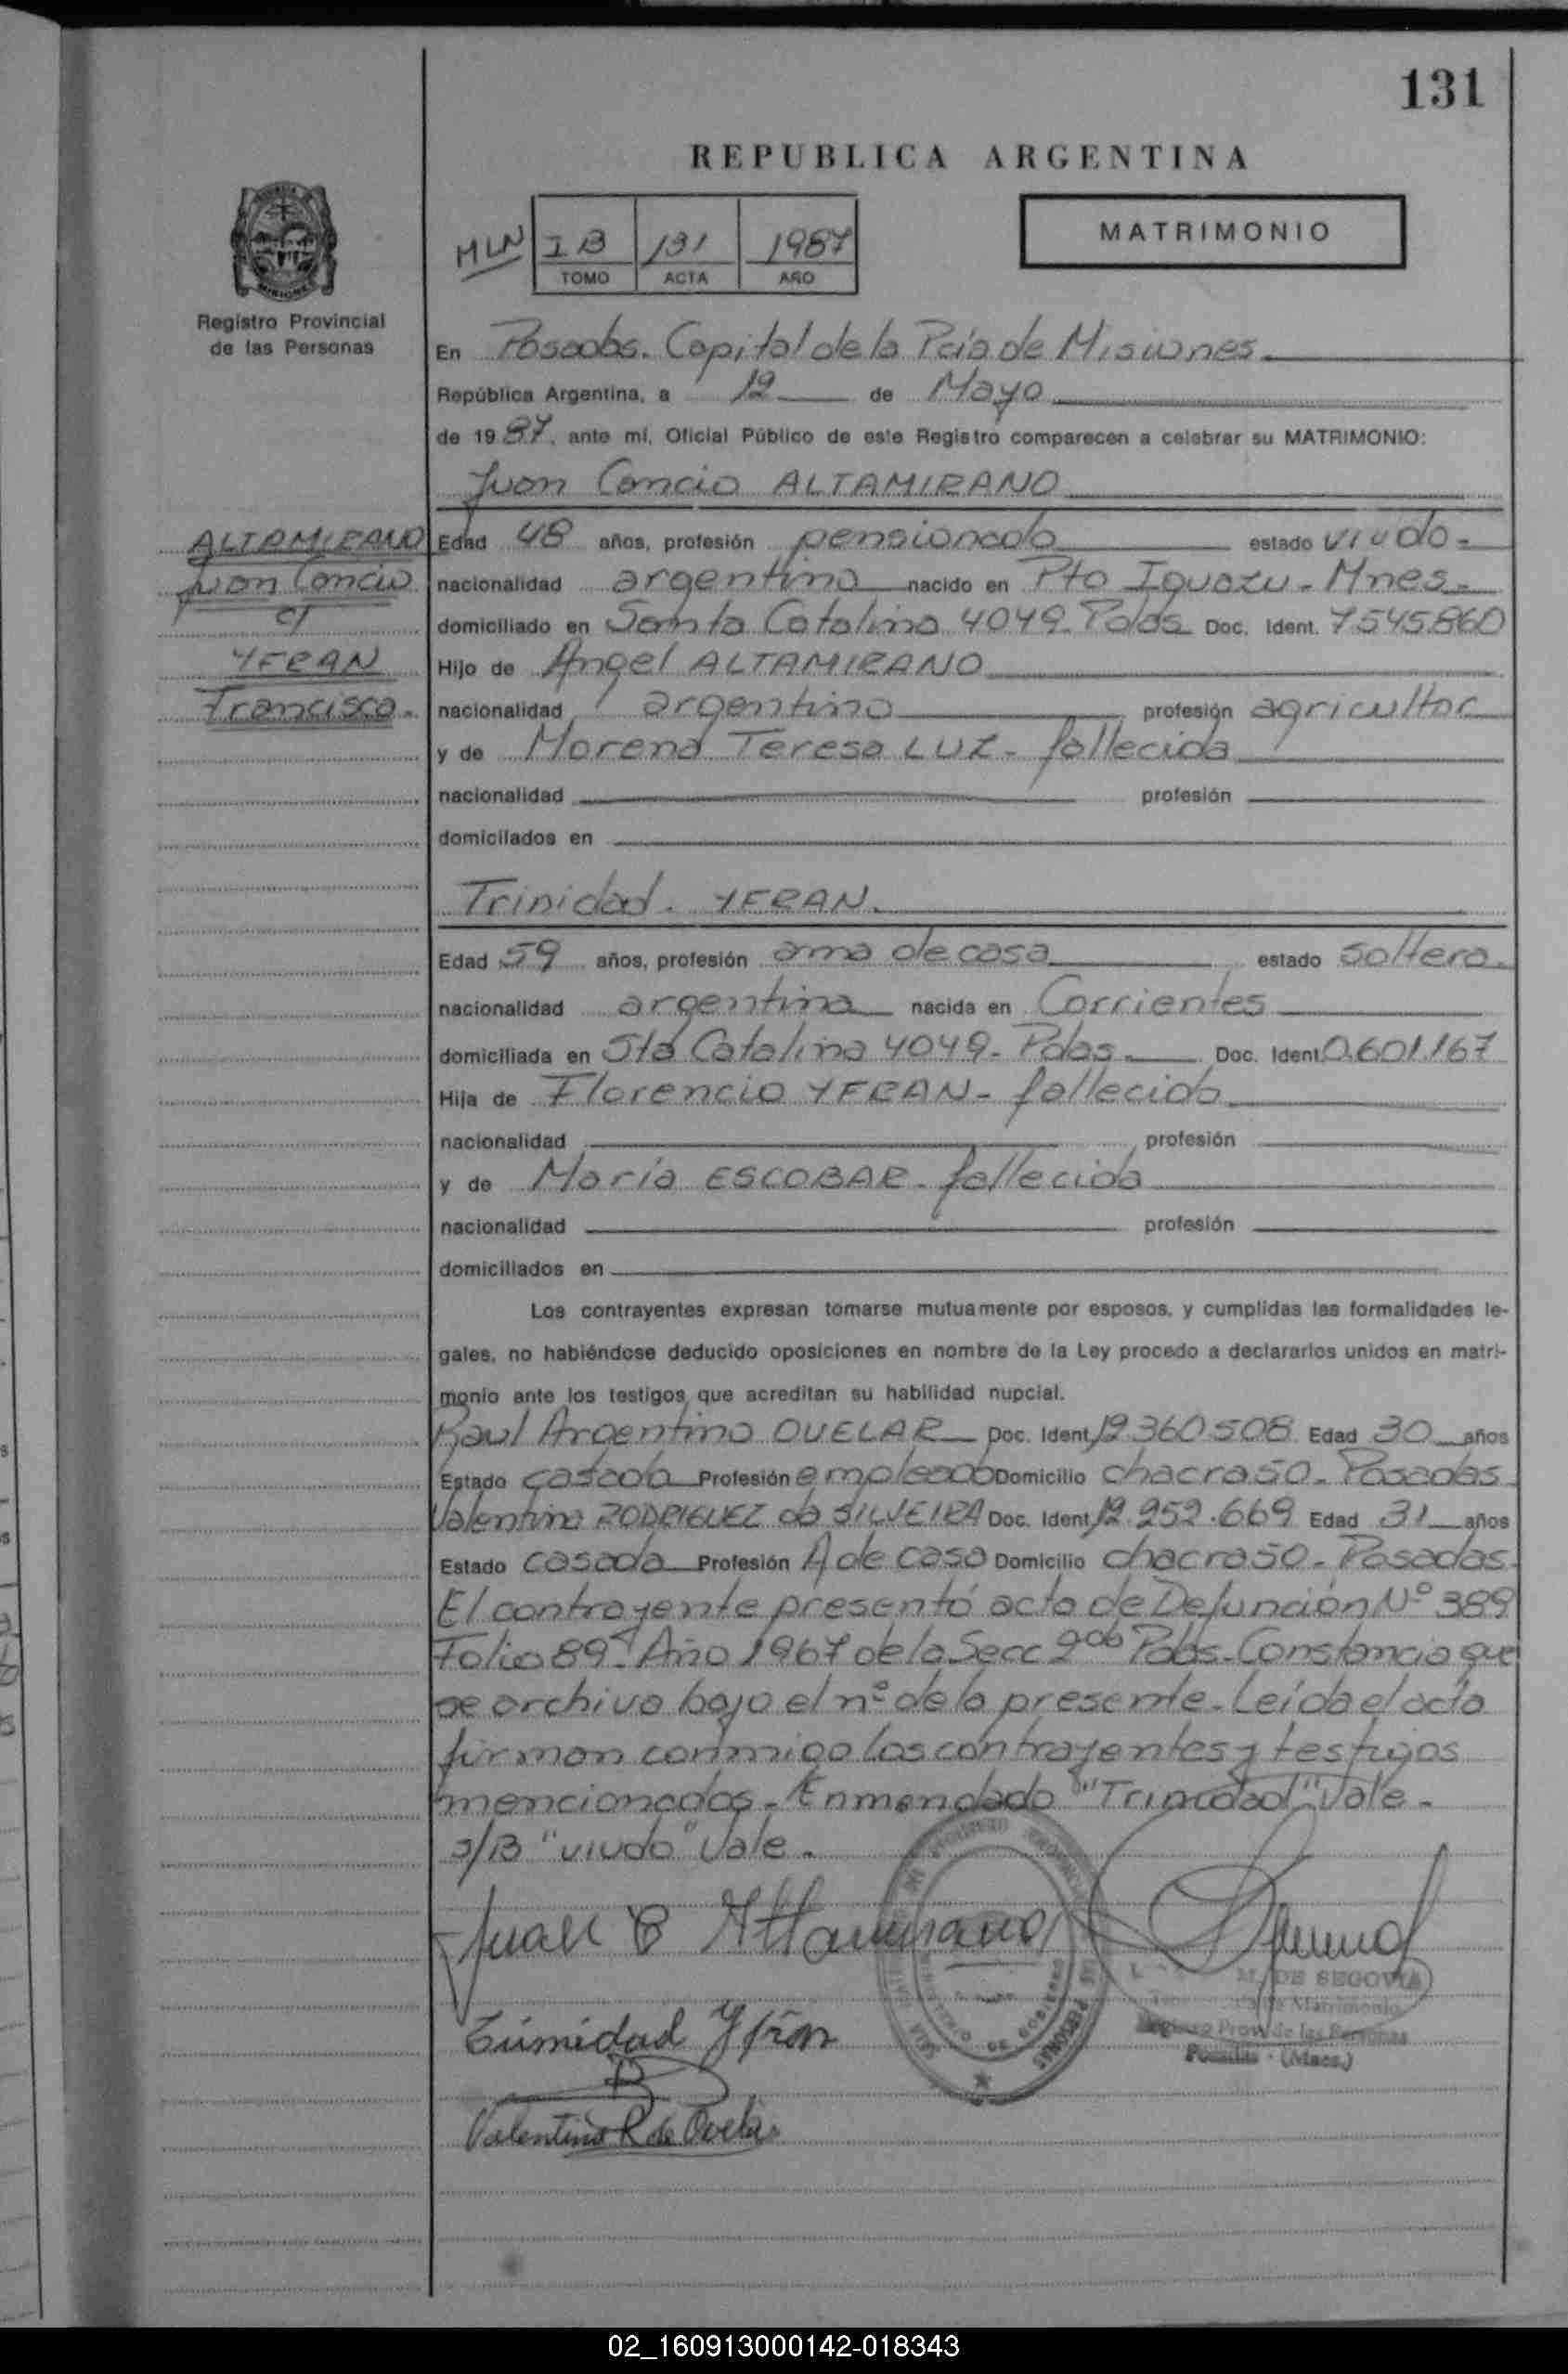 131
REPUBLICA ARGENTINA
MLN
I B 131 1987
TOMO ACTA AÑO
MATRIMONIO
MISIONES
Registro Provincial
de las Personas
En Posadas. Capital de la Pcia de Misiones
República Argentina, a 19 de Mayo
de 19 87, ante mí, Oficial Público de este Registro comparecen a celebrar su MATRIMONIO:
Juan Cancio ALTAMIRANO
ALTAMIRANO
Juan Cancio
c/
YFRAN
Francisca.
Edad 48 años, profesión pensionado estado viudo-
nacionalidad argentina nacido en Pto Iguazu - Mnes-
domiciliado en Santa Catalina 4049 Pdas Doc. Ident. 7.545.860
Hijo de Angel ALTAMIRANO
nacionalidad argentino profesión agricultor
y de Morena Teresa LUZ - fallecida
nacionalidad profesión
domicilados en
Trinidad. YFRAN.
Edad 59 años, profesión ama de casa estado soltera.
nacionalidad argentina nacida en Corrientes
domiciliada en Sta Catalina 4049 - Pdas Doc. Ident. 0.601.167
Hija de Florencio YFRAN - fallecido
nacionalidad profesión
y de María ESCOBAR - fallecida
nacionalidad profesión
domiciliados en
Los contrayentes expresan tomarse mutuamente por esposos, y cumplidas las formalidades le-
gales, no habiéndose deducido oposiciones en nombre de la Ley procedo a declararlos unidos en matri-
monio ante los testigos que acreditan su habilidad nupcial.
Raul Argentino OVELAR Doc. Ident. 12.360.508 Edad 30 años
Estado casado Profesión empleado Domicilio chacra 50 - Posadas
Valentina RODRIGUEZ da SILVEIRA Doc. Ident. 12.952.669 Edad 31 años
Estado casada Profesión A de casa Domicilio chacra 50 - Posadas
El contrayente presentó acta de Defunción Nº 389
Folio 89 Año 1967 de la Secc 2da Pdas - Constancia que
se archiva bajo el nº de la presente - Leída el acta
firman conmigo los contrayentes y testigos
mencionados - Enmendado "Trinidad" Vale -
s/B "viudo" Vale.
Juan C Altamirano
M. DE SEGOVIA
Matrimonio
Registro Prov. de las Personas
Posadas - (Mnes.)
Trinidad Yfran
Valentina R de Ovelar
02_160913000142-018343